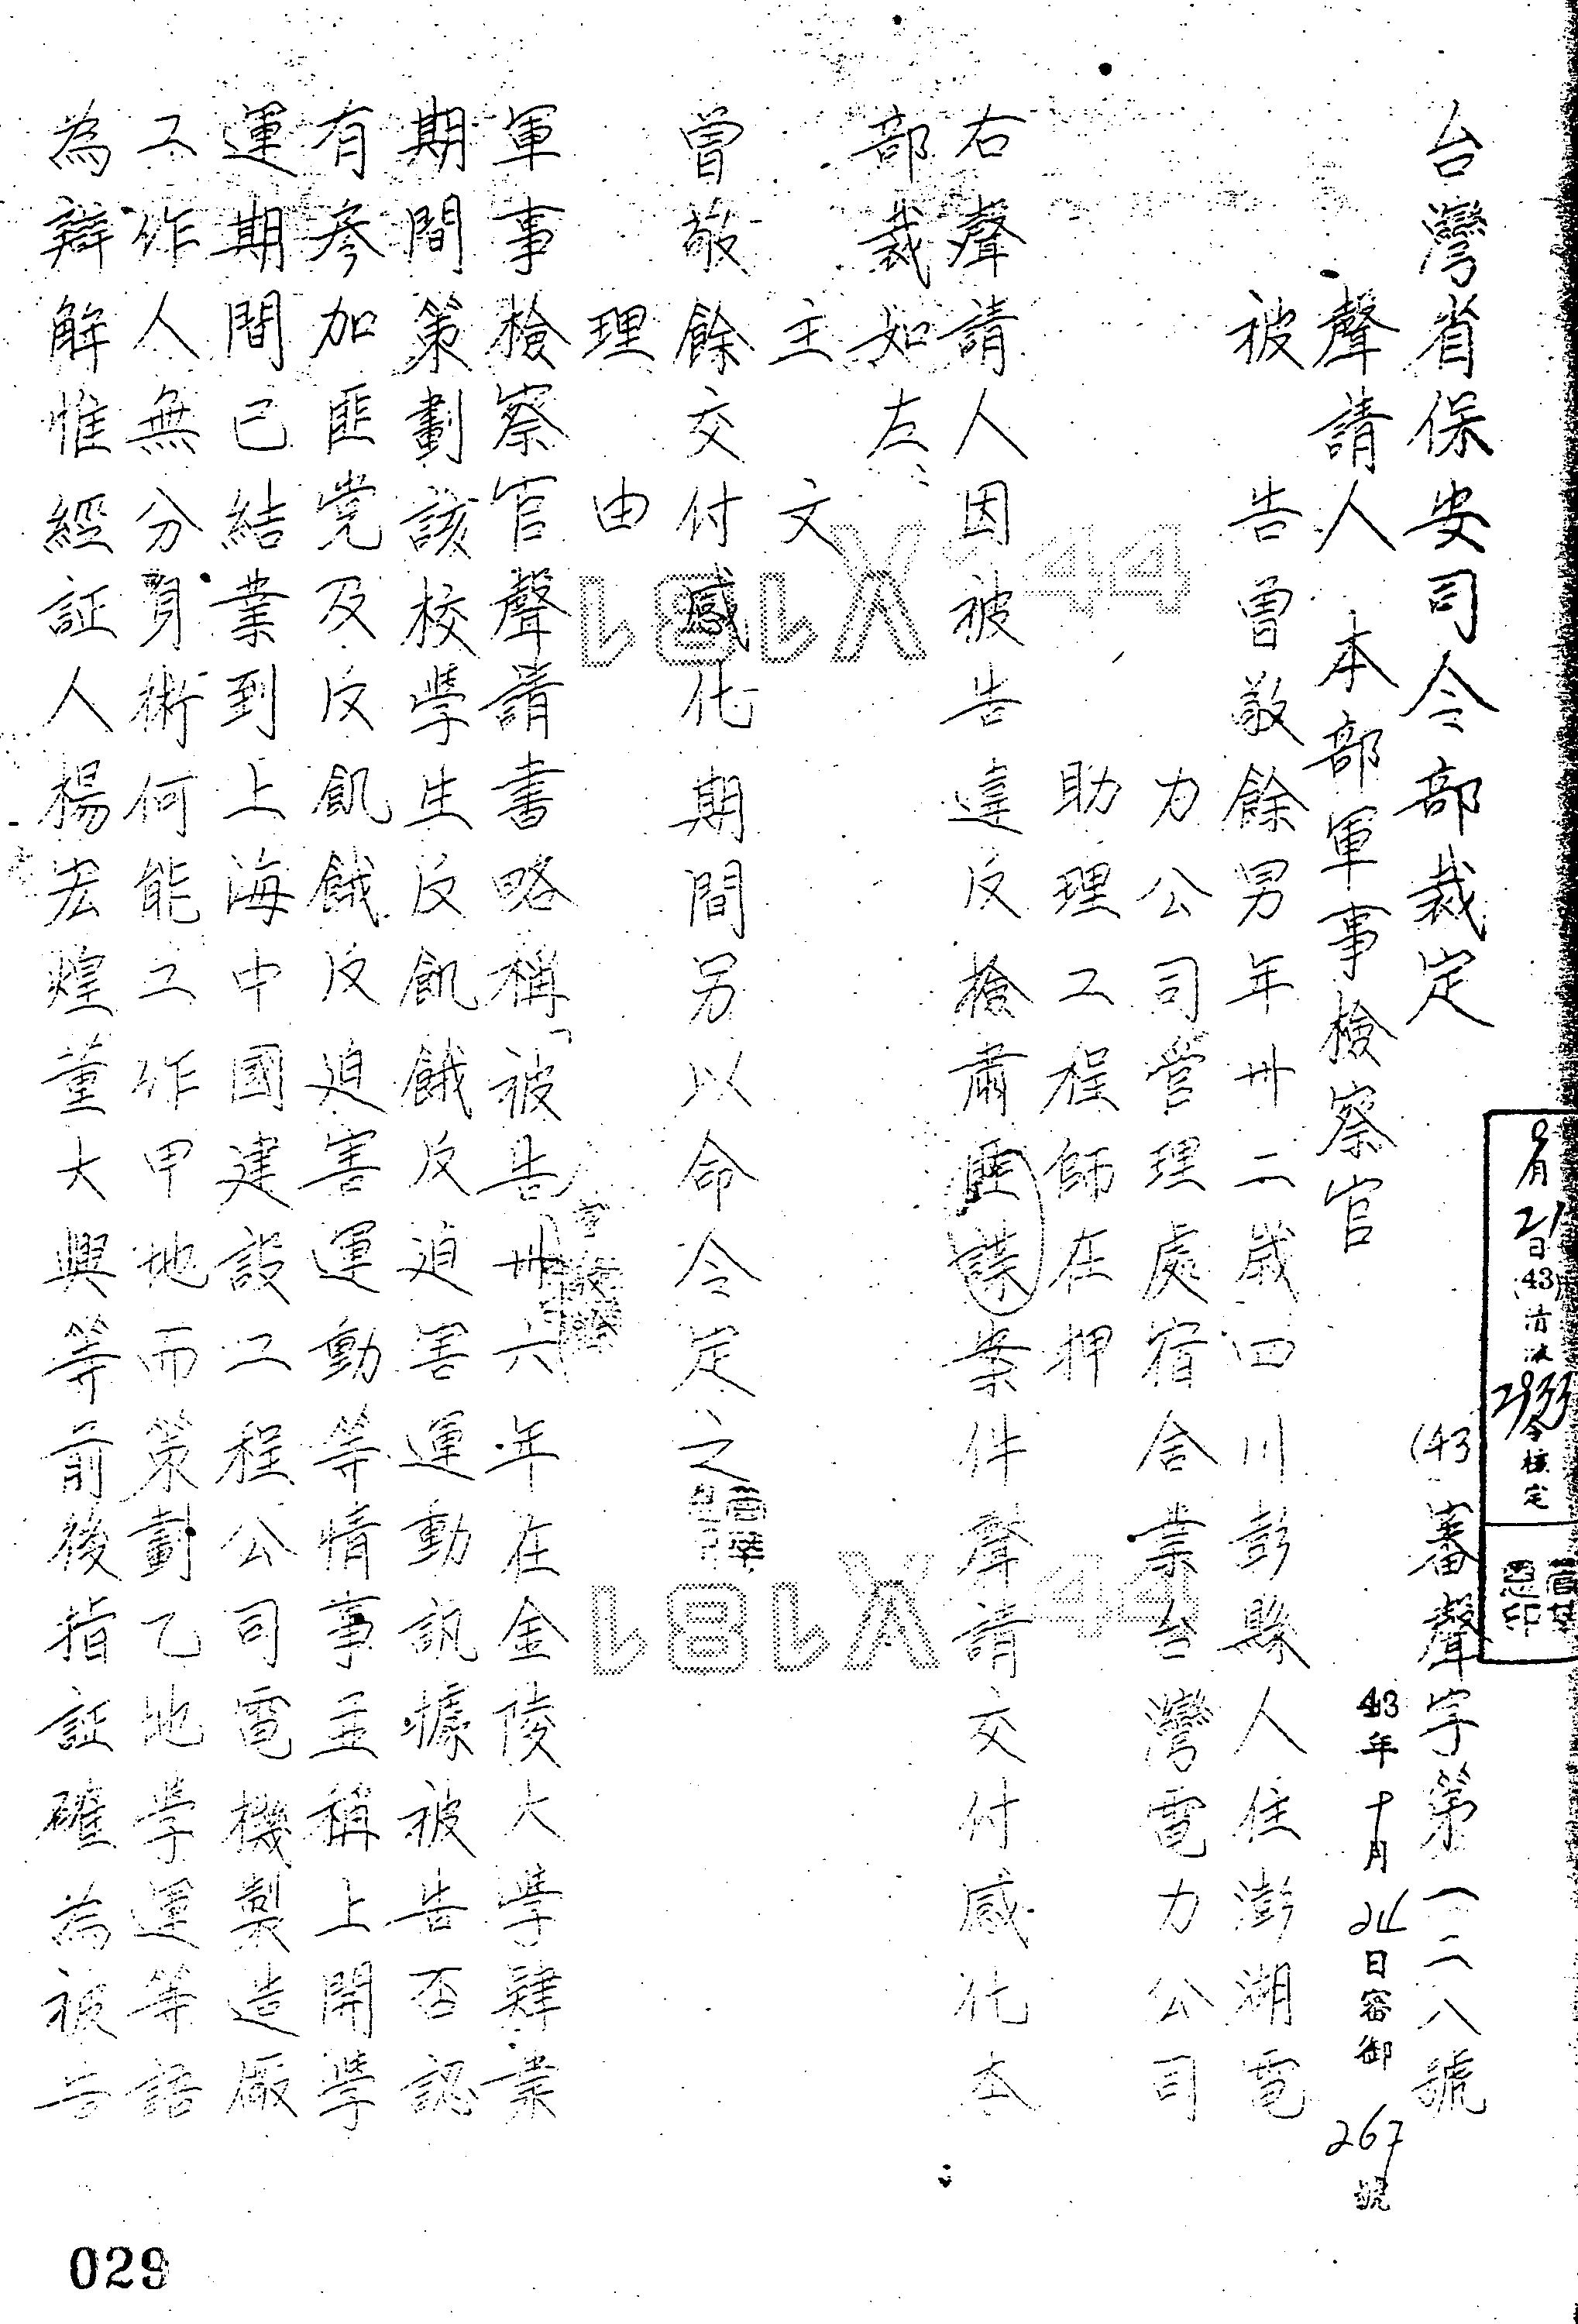 台灣省保安司令部裁定
(43)審聲字第一二八號
43年十月24日審御267號
聲請人本部軍事檢察官
被告曾敬餘男年卅二歲四川彭縣人住澎湖電
力公司管理處宿舍業台灣電力公司
助理工程師在押
右聲請人因被告違反檢肅匪諜案件聲請交付感化本
部裁如左：
主文
曾敬餘交付感化期間另以命令定之
理由
軍事檢察官聲請書略稱「被告卅六年在金陵大學肄業
期間策劃該校學生反飢餓反迫害運動訊據被告否認
有參加匪党及反飢餓反迫害運動等情事並稱上開學
運期間已結業到上海中國建設工程公司電機製造廠
工作人無分身術何能工作甲地而策劃乙地學運等語
為辯解惟經証人楊宏煌董大興等前後指証確為被告
21日(43)清
2933令核定
029